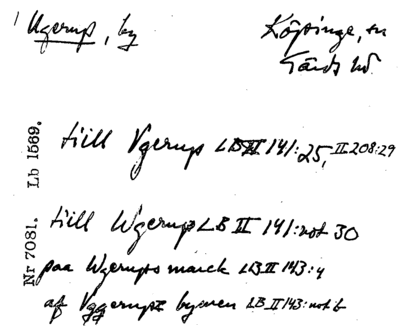 1 Ugerup, by
Köpinge, sn
Gärds hd
Lb 1569.
till Vgerup LB II 141:25, II 208:29
Nr 7081.
till Wgerup LB II 141:not 30
paa Wgerups marck LB II 143:4
af Vggerups bymen LB II 143:not b